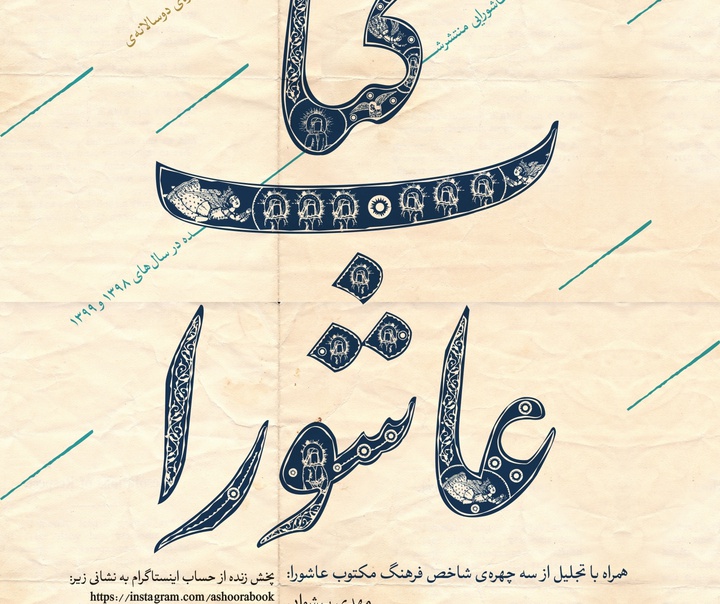 وی دوسالانه‌ی
عاشورایی منتشرشـ
ـده در سال‌های ۱۳۹۸ و ۱۳۹۹
کتاب
عاشورا
همراه با تجلیل از سه چهره‌ی شاخص فرهنگ مکتوب عاشورا:
پخش زنده از حساب اینستاگرام به نشانی زیر:
https://instagram.com/ashoorabook